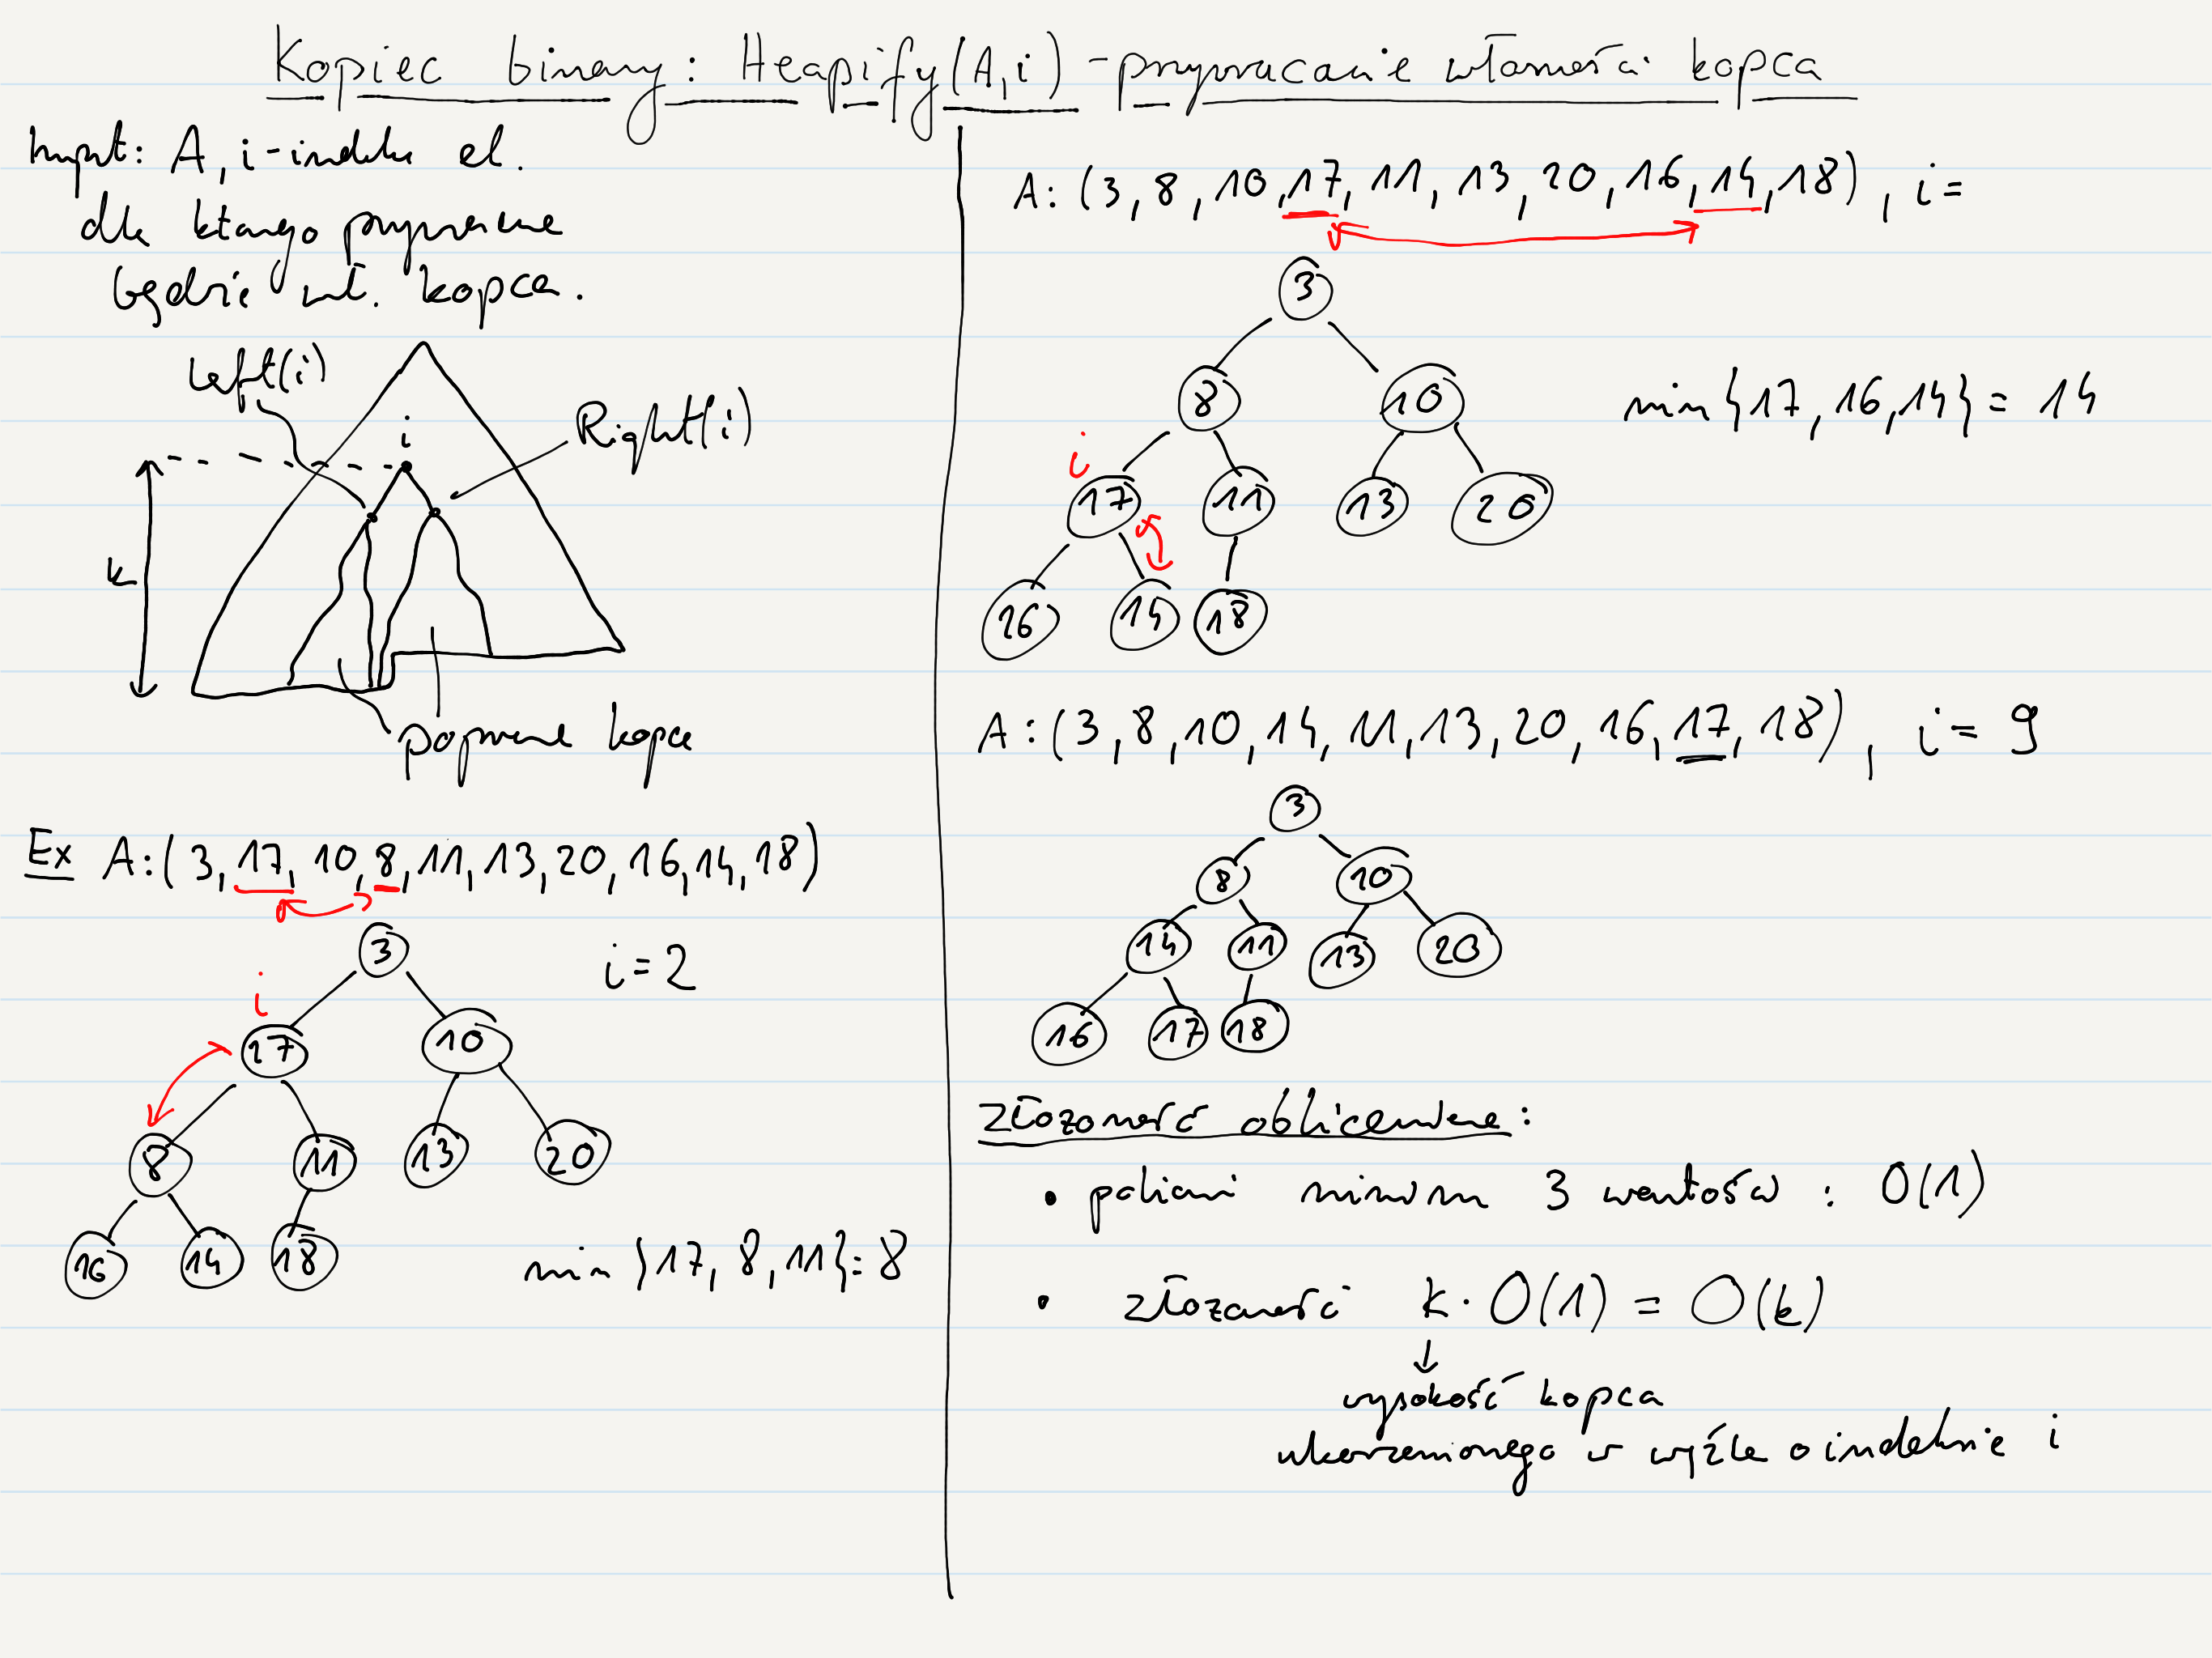 Kopiec binarny: Heapify(A,i) - przywracanie własności kopca
Input: A, i-indeks el.
dla którego przywrócone
będzie wł. kopca.
Left(i)
i
Right(i)
k
poprawne kopce
Ex A:(3, 17, 10, 8, 11, 13, 20, 16, 14, 18)
3
i=2
i
17
10
8
11
13
20
16
14
18
min {17, 8, 11}=8
A: (3, 8, 10, 17, 11, 13, 20, 16, 14, 18), i=
3
8
10
min{17, 16, 14} = 14
i
17
11
13
20
16
14
18
A:(3, 8, 10, 14, 11, 13, 20, 16, 17, 18), i= 9
3
8
10
14
11
13
20
16
17
18
złożoność obliczeniowa:
• policzenie minimum 3 wartości : O(1)
• złożoność k·O(1) = O(k)
↓
wysokość kopca
ukorzenionego w węźle o indeksie i